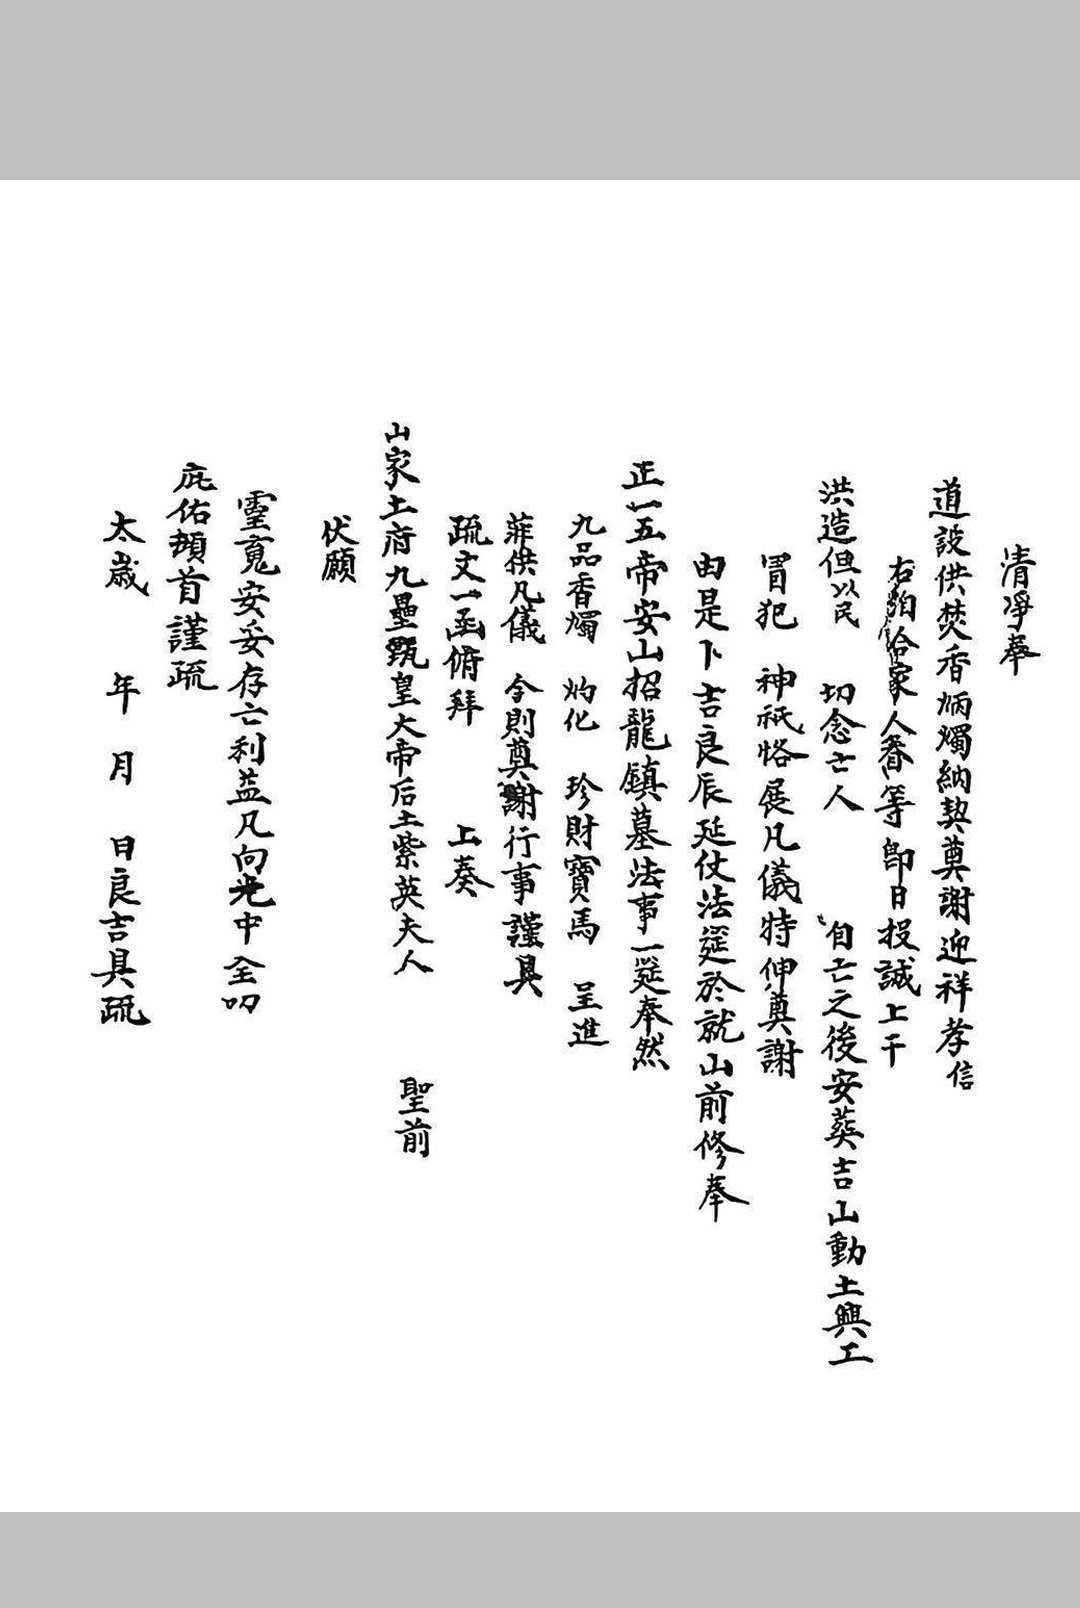 清凈奉
道設供焚香炳燭納契奠謝迎祥孝信
右洎合家人眷等即日投誠上干
洪造但以民 切念亡人 自亡之後安葬吉山動土興工
冒犯 神祇恪展凡儀特伸奠謝
由是卜吉良辰延仗法筵於就山前修奉
正一五帝安山招龍鎮墓法事一筵奉然
九品香燭 灼化 珍財寶馬 呈進
菲供凡儀 今則奠謝行事謹具
疏文一函俯拜 上奏
山家土府九壘甄皇大帝后土紫英夫人 聖前
伏願
靈寬安妥存亡利益凡向光中全叨
庇佑頓首謹疏
太歲 年 月 日良吉具疏